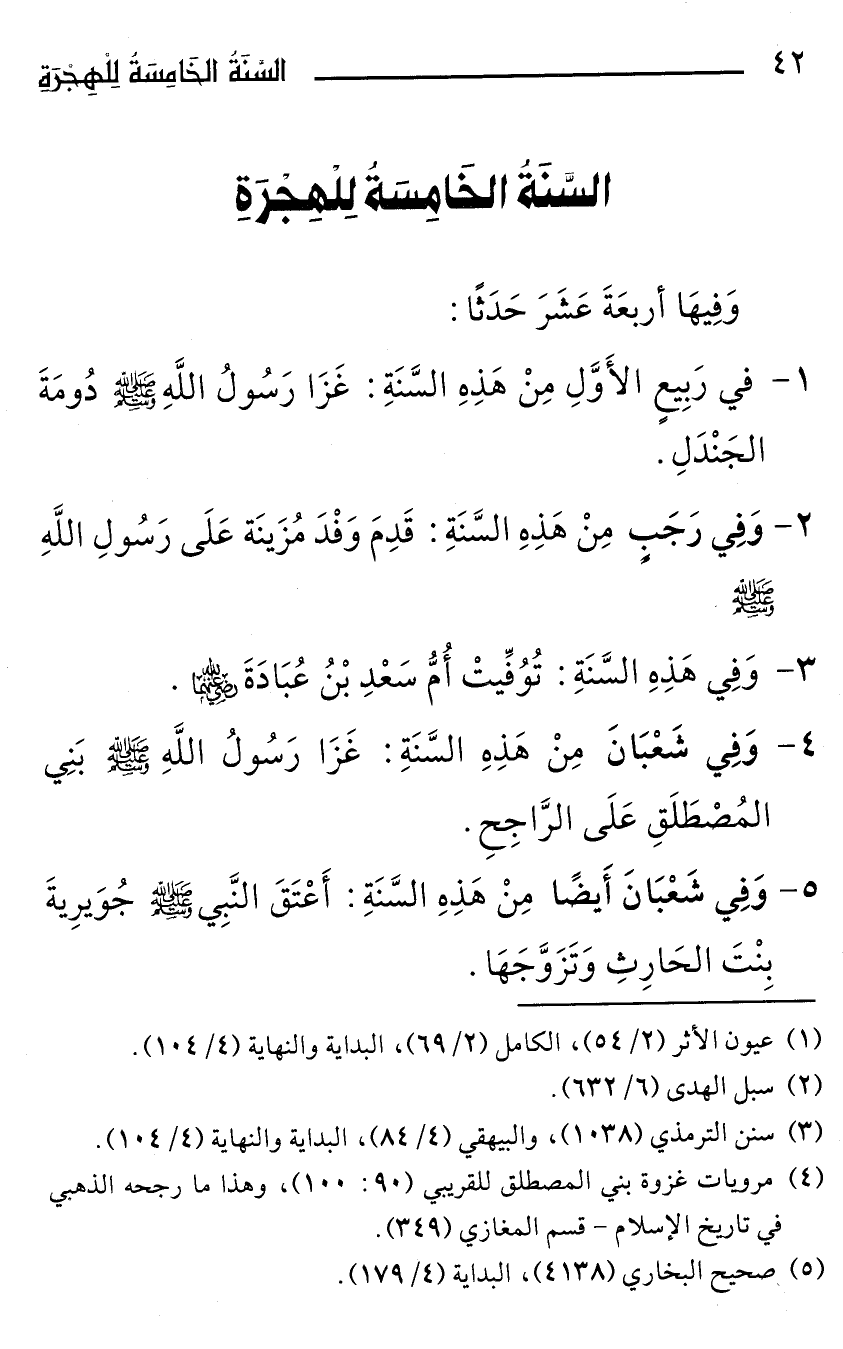 ٤٢ السَّنَةُ الخَامِسَةُ لِلْهِجْرَةِ
السَّنَةُ الخَامِسَةُ لِلْهِجْرَةِ
وَفِيهَا أربعَةَ عَشَرَ حَدَثًا:
١- في رَبِيعٍ الأَوَّلِ مِنْ هَذِهِ السَّنَةِ: غَزَا رَسُولُ اللَّهِ ﷺ دُومَةَ
الجَنْدَلِ.
٢- وَفِي رَجَبٍ مِنْ هَذِهِ السَّنَةِ: قَدِمَ وَفْدَ مُزَينَة عَلَى رَسُولِ اللَّهِ
ﷺ
٣- وَفِي هَذِهِ السَّنَةِ: تُوُفِّيتْ أُمُّ سَعْدِ بْنُ عُبَادَةَ رضي الله عنهما.
٤- وَفِي شَعْبَانَ مِنْ هَذِهِ السَّنَةِ: غَزَا رَسُولُ اللَّهِ ﷺ بَنِي
المُصْطَلَقِ عَلَى الرَّاجِحِ.
٥- وَفِي شَعْبَانَ أَيضًا مِنْ هَذِهِ السَّنَةِ: أَعْتَقَ النَّبِي ﷺ جُوَيرِيةَ
بِنْتَ الحَارِثِ وَتَزَوَّجَهَا.
(١) عيون الأثر (٢/ ٥٤)، الكامل (٢/ ٦٩)، البداية والنهاية (٤/ ١٠٤).
(٢) سبل الهدى (٦/ ٦٣٢).
(٣) سنن الترمذي (١٠٣٨)، والبيهقي (٤/ ٨٤)، البداية والنهاية (٤/ ١٠٤).
(٤) مرويات غزوة بني المصطلق للقريبي (٩٠: ١٠٠)، وهذا ما رجحه الذهبي
في تاريخ الإسلام - قسم المغازي (٣٤٩).
(٥) صحيح البخاري (٤١٣٨)، البداية (٤/ ١٧٩).